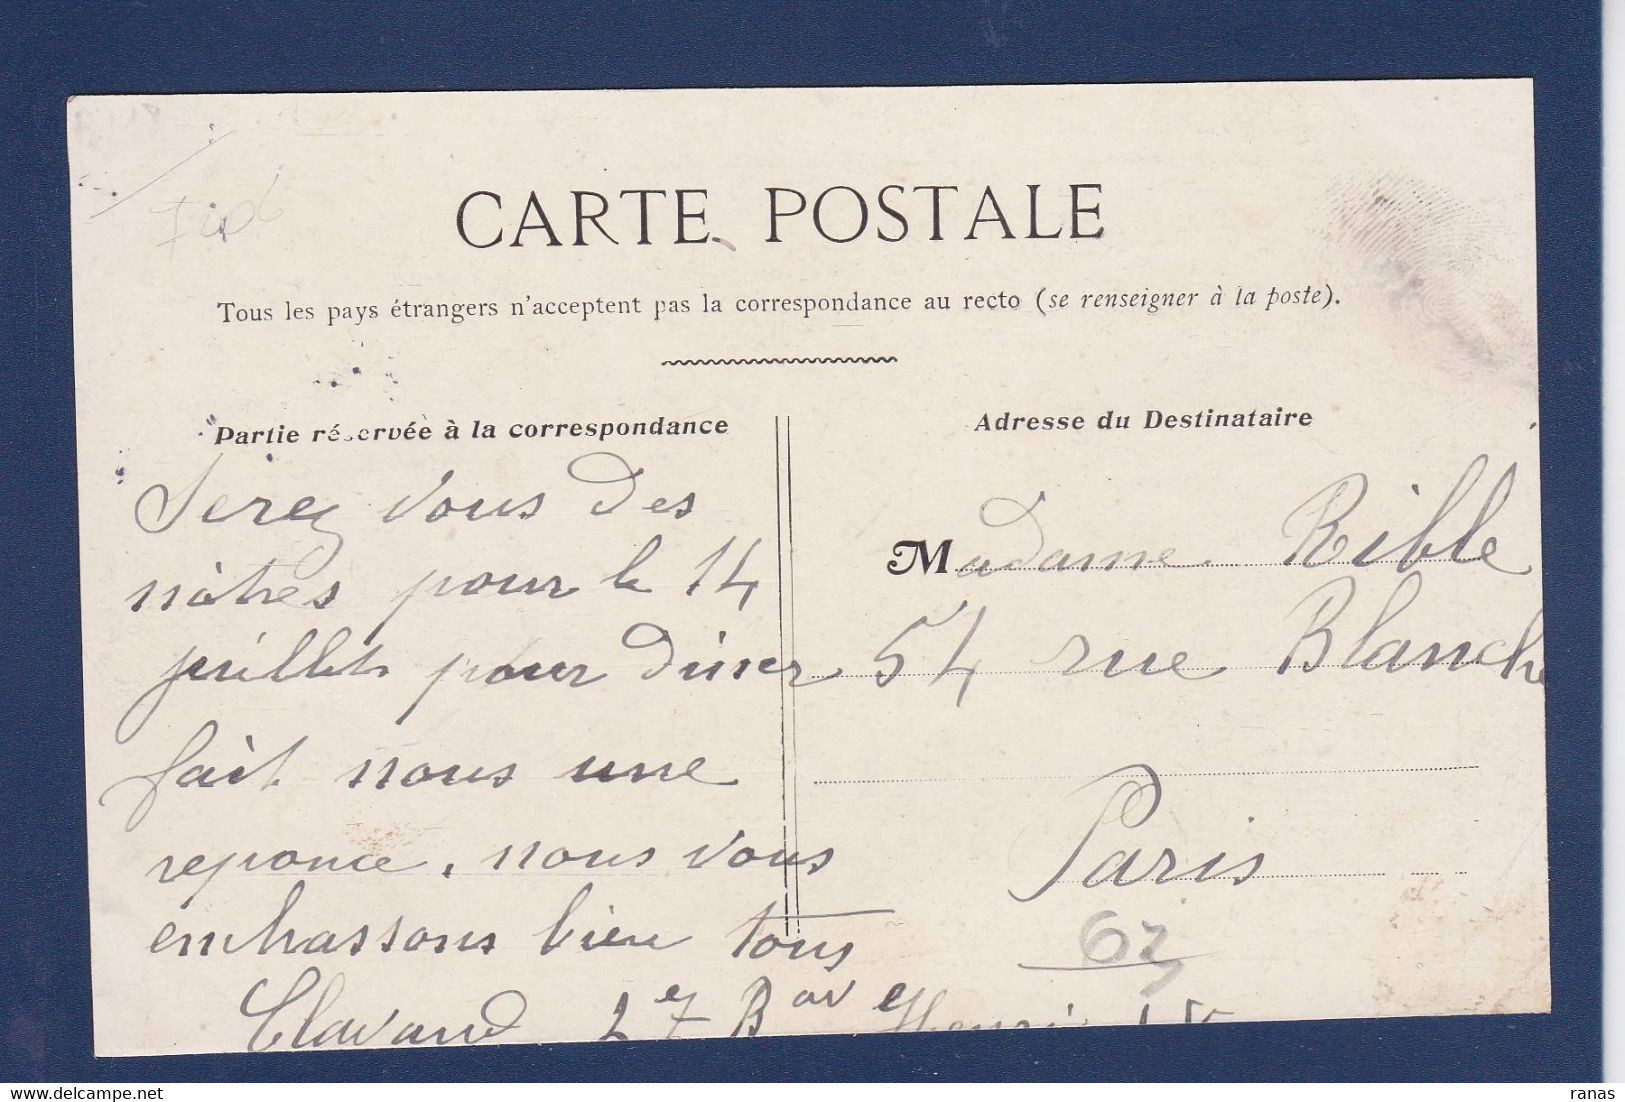 CARTE POSTALE
Tous les pays étrangers n'acceptent pas la correspondance au recto (se renseigner à la poste).
Partie réservée à la correspondance
Serez vous des
nôtres pour le 14
juillet pour diner
fait nous une
reponce, nous vous
embrassons bien tous
27 B
Adresse du Destinataire
Madame Rible
54 rue Blanche
Paris
63
ranas